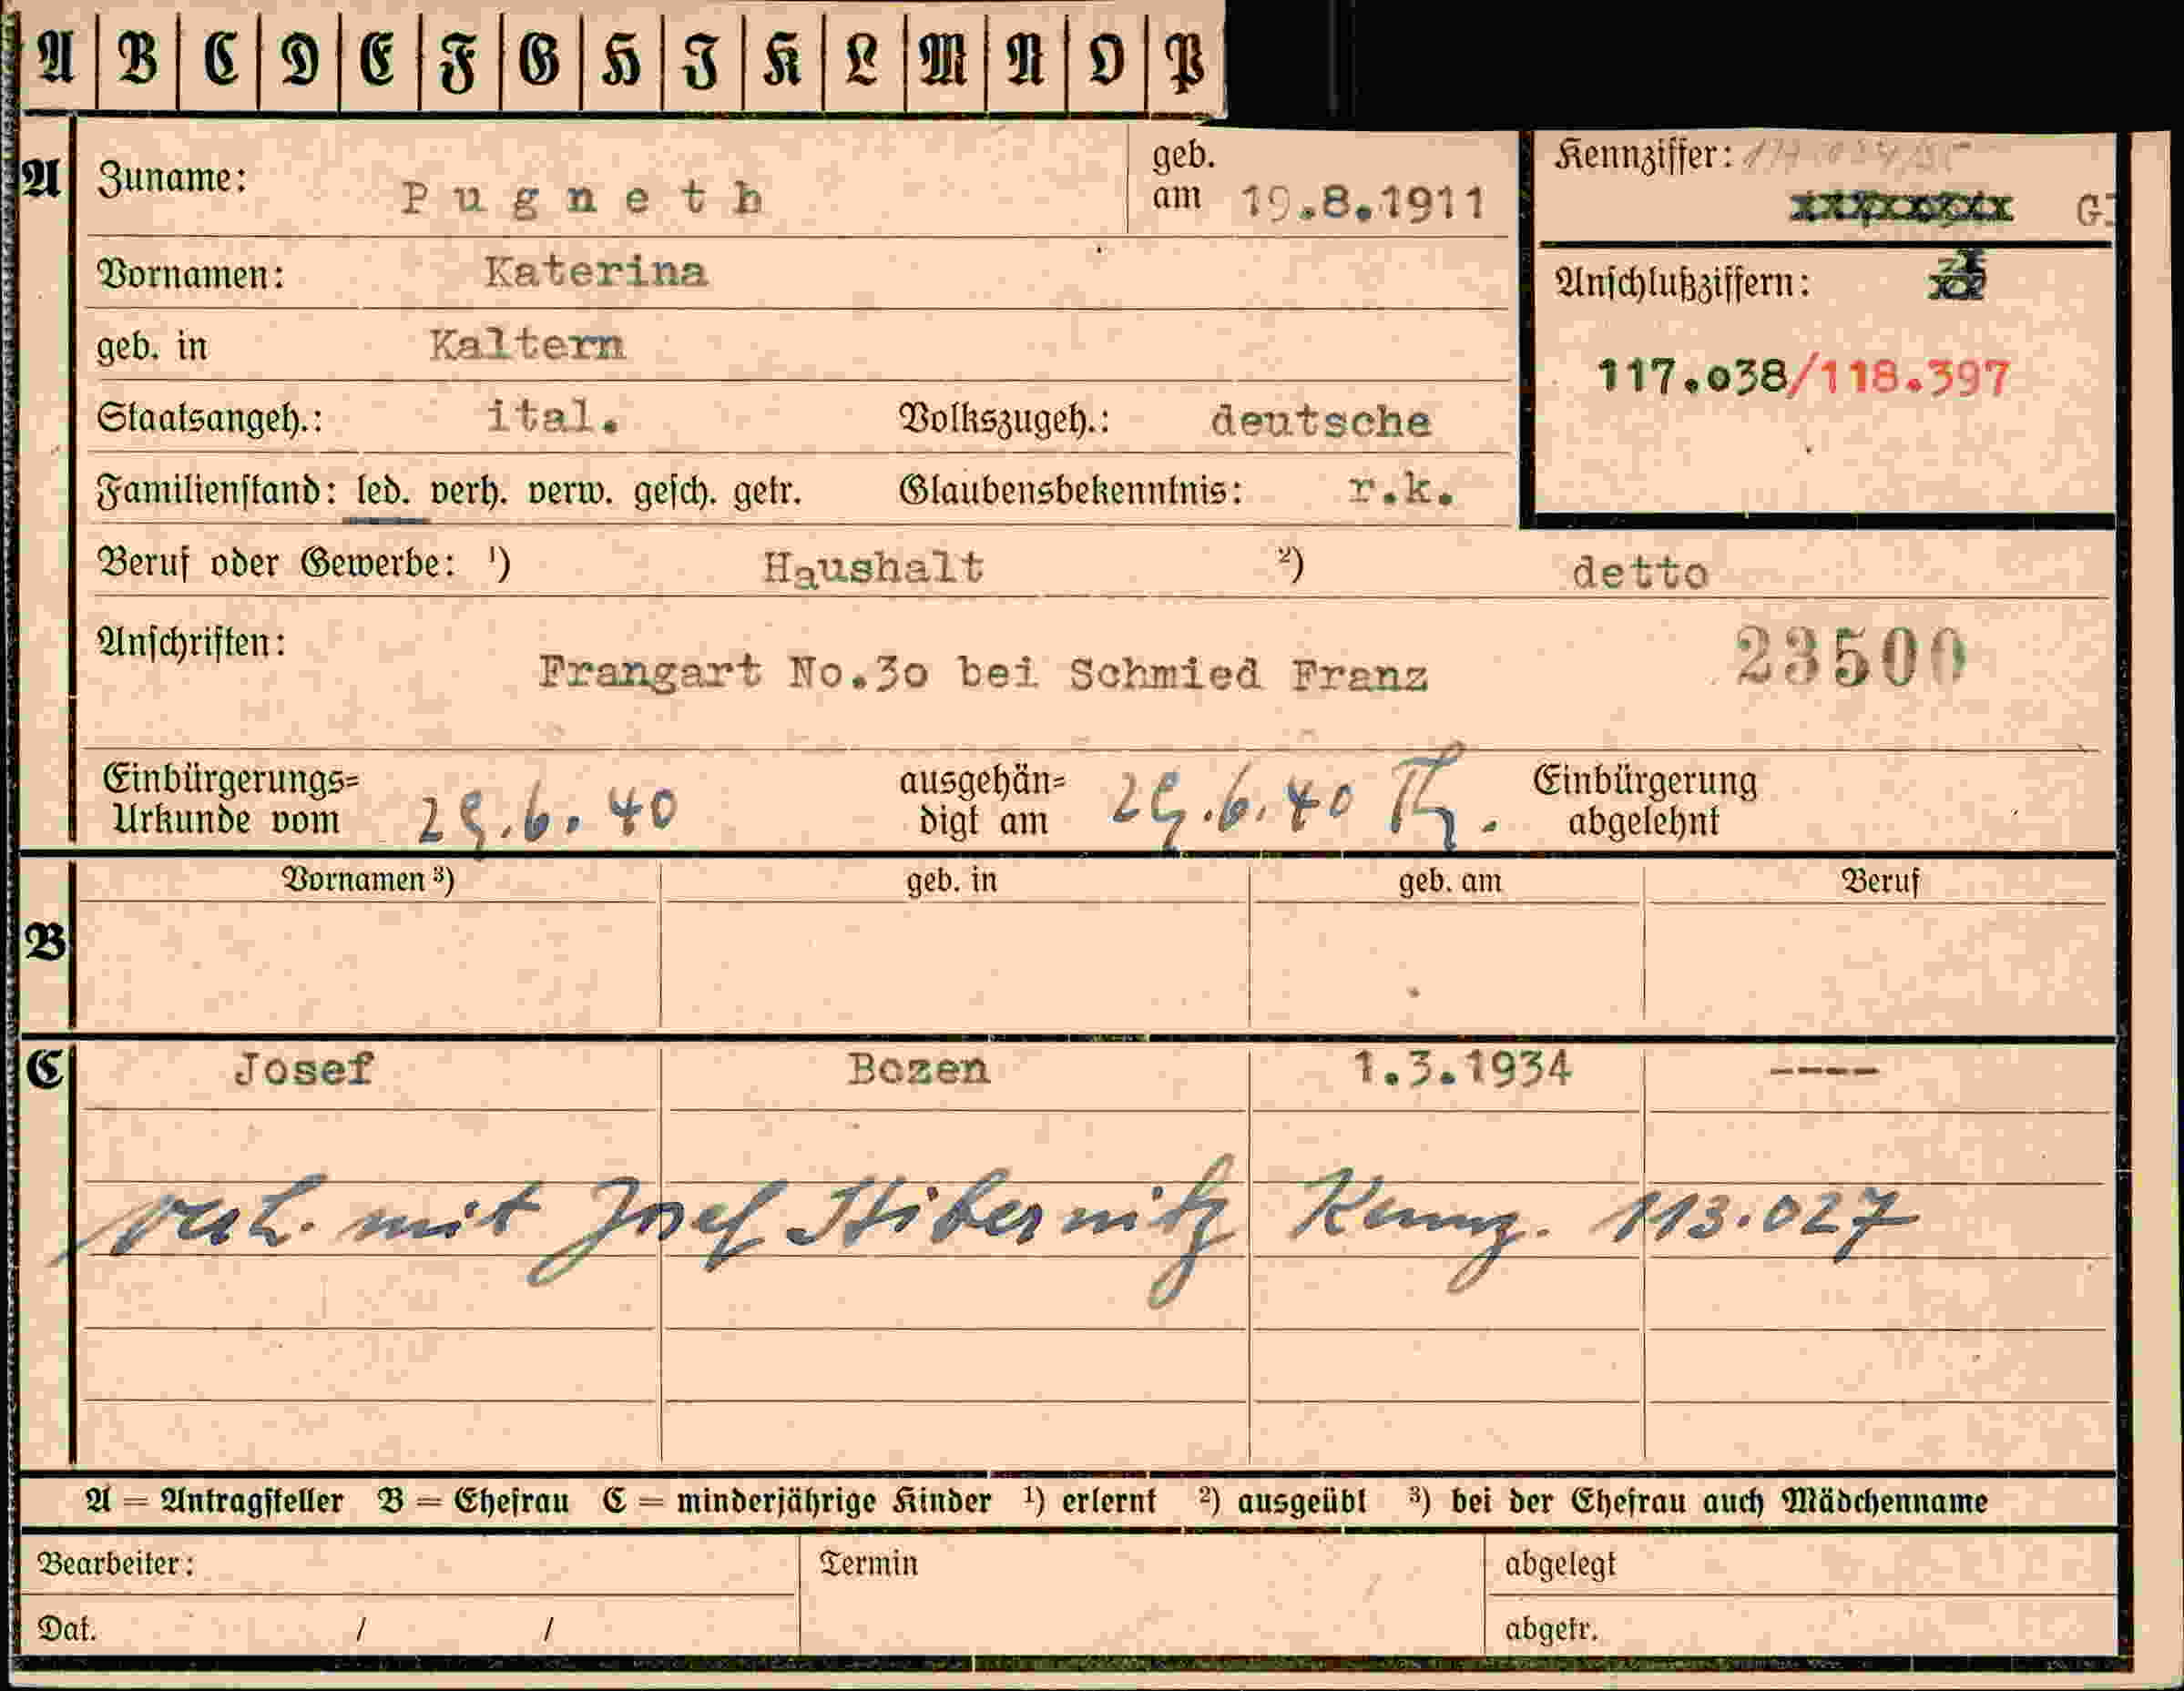 A B C D E F G H I K L M N O P
A Zuname: Pugneth geb. am 19.8.1911 Kennziffer:
Vornamen: Katerina Anschlußziffern:
geb. in Kaltern 117.038/118.397
Staatsangeh.: ital. Volkszugeh.: deutsche
Familienstand: led. verh. verw. gesch. getr. Glaubensbekenntnis: r.k.
Beruf oder Gewerbe: 1) Haushalt 2) detto
Anschriften: 23500
Frangart No.30 bei Schmied Franz
Einbürgerungs= ausgehän= Einbürgerung
Urkunde vom 29.6.40 digt am 29.6.40 abgelehnt
Vornamen 3) geb. in geb. am Beruf
B
C Josef Bozen 1.3.1934 ----
verh. mit Josef Stibernitz Kennz. 113.027
A = Antragsteller B = Ehefrau C = minderjährige Kinder 1) erlernt 2) ausgeübt 3) bei der Ehefrau auch Mädchenname
Bearbeiter: Termin abgelegt
Dat. / / abgetr.